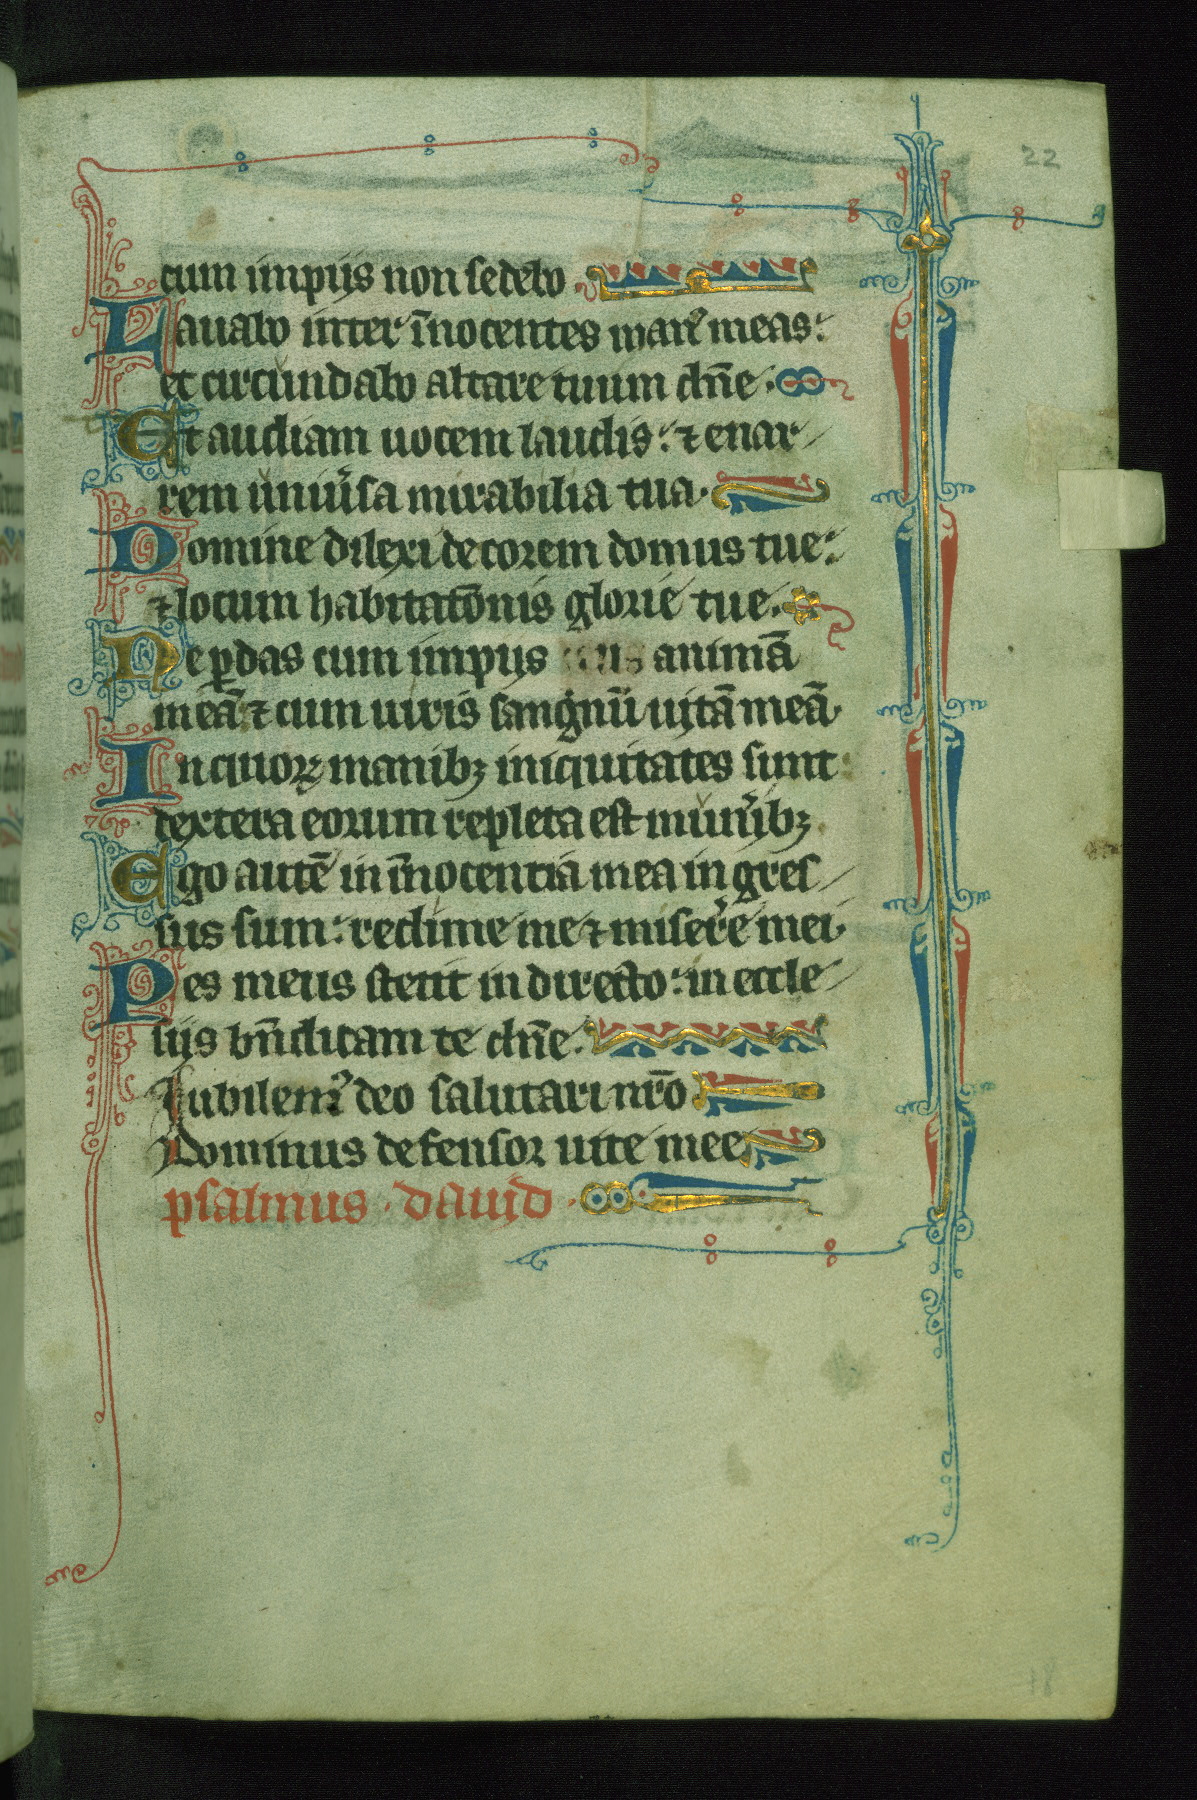 22
cum impijs non sedebo.
Lauabo inter īnocentes man᷒ meas:
et circundabo altare tuum dn̄e.
Et audiam uocem laudis: ⁊ enar
rem uniũsa mirabilia tua.
Domine dilexi decorem domus tue:
⁊ locum habitatōnis glorie tue.
Ne ꝑdas cum impijs animā
meā ⁊ cum uiris sanguinū uitā meā.
In quoꝝ manibꝫ iniquitates sunt
dextera eorum repleta est mun̉ibꝫ.
Ego autē in īnocentia mea ingres
sus sum: redime me ⁊ miserere mei.
Pes meus stetit in directo: in eccle
siis bn̄dicam te dn̄e.
Iubilem᷒ deo salutari nr̄o
Dominus defensor uite mee
psalmus. dauid.
18